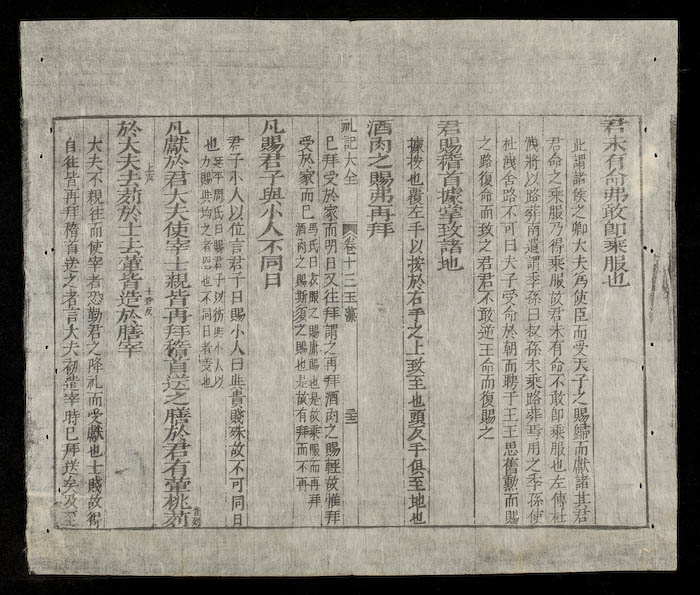 君未有命弗敢即乘服也
此謂諸侯之卿大夫為使臣而受天子之賜歸而獻諸其君
君命之乘服乃得乘服故君未有命不敢即乘服也左傳杜
洩將以路葬南遺謂季孫曰叔孫未乘路葬焉用之季孫使
杜洩舍路不可曰夫子受命於朝而聘于王王思舊勳而賜
之路復命而致之君君不敢逆王命而復賜之
君賜稽首據掌致諸地
據按也覆左手以按於右手之上致至也頭及手俱至地也
酒肉之賜弗再拜
礼記大全 卷十三玉藻 三十二
已拜受於家而明日又往拜謂之再拜酒肉之賜輕故惟拜
受於家而已 馬氏曰衣服之賜庸賜也是故乘服而再拜
酒肉之賜斯須之賜也是故有拜而不再
凡賜君子與小人不同日
君子小人以位言君子曰賜小人曰與貴賤殊故不可同日
也 延平周氏曰賜君子以
力賜 均之者 也不同日者 也
凡獻於君大夫使宰士親皆再拜稽首送之膳於君有葷桃茢 音列
於大夫去茢於士去葷皆造於膳宰
上声
大夫不親往而使宰者恐勤君之降礼而受獻也士賤故得
自往皆再拜稽首送之者言大夫初遣宰時已拜送矣及至